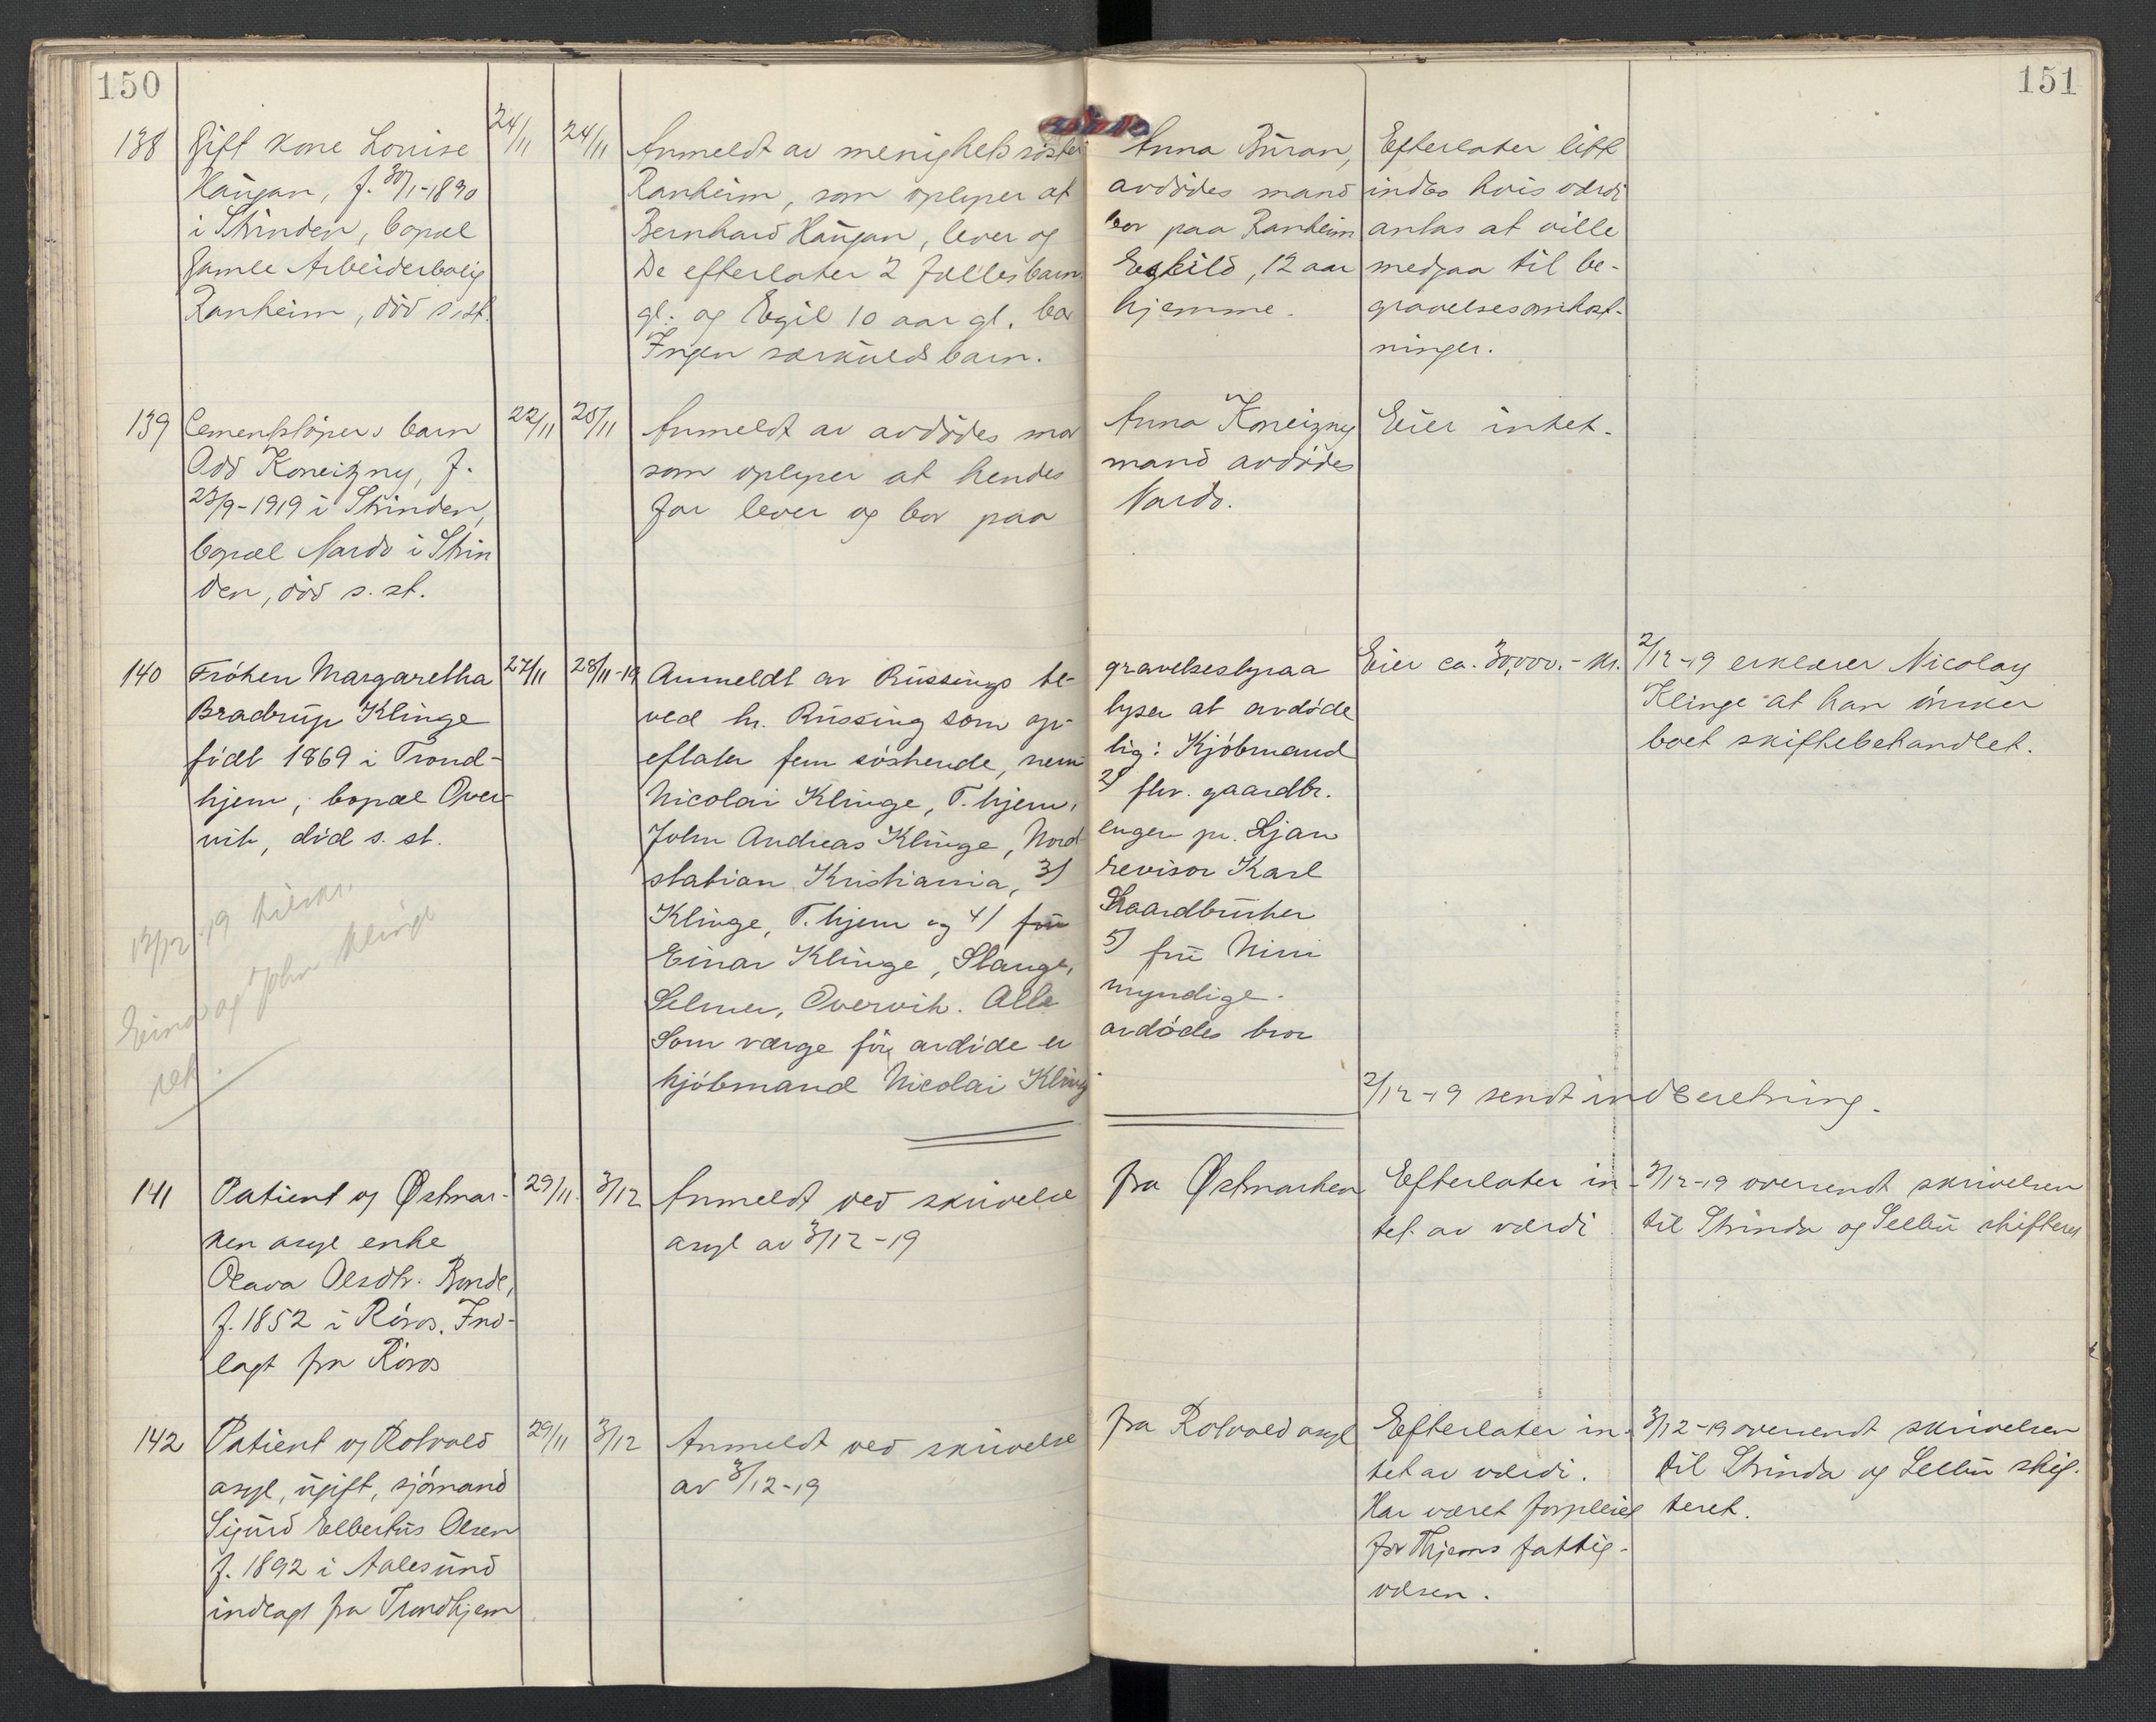 150
151
138
Gift kone Louise
Haugan, f. 30/1-1890
i Strinden, bopæl
Gamle Arbeiderbolig
Ranheim, död s. st.
24/11
24/11
Anmeldt av menighetssöster
Ranheim, som oplyser at
Bernhard Haugan, lever og
De efterlater 2 fællesbarn
gl. og Egil 10 aar gl. bor
Ingen særkuldsbarn.
Anna Buran,
avdödes mand
bor paa Ranheim
Eskild, 12 aar
hjemme.
Efterlater litt
indbo hvis værdi
antas at ville
medgaa til be-
gravelsesomkost-
ninger.
139
Cementstöpers barn
Odd Koneizny, f.
23/9-1919 i Strinden,
bopæl Nardo i Strin
den, död s. st.
22/11
25/11
Anmeldt av avdödes mor
som oplyser at hendes
far lever og bor paa
Anna Koneizny
mand avdödes
Nardo.
Eier intet.
140
Fröken Margaretha
Bradrup Klinge
födt 1869 i Trond-
hjem, bopæl Over-
vik, död s. st.
27/11
28/11-19
Anmeldt av Russings be-
ved hr. Russing som op-
eflater fem söskende, nem
Nicolai Klinge, T.hjem,
John Andreas Klinge, Nord
station Kristiania, 3)
Klinge, T.hjem og 4) fru
Einar Klinge, Stange,
Selmer, Overvik. Alle
Som værge for avdöde er
kjöbmand Nicolai Klinge
gravelsesbyraa
lyser at avdöde
lig: Kjöbmand
2) fhv. gaardbr.
engen pr. Ljan
revisor Karl
Gaardbruker
5) fru Nini
myndige.
avdödes bror
Eier ca. 30,000.- kr.
2/12-19 erklærer Nicolay
Klinge at han önsker
boet skiftebehandlet.
12/12-19 tilskr.
Einar og John Klinge
rek.
2/12-19 sendt indberetning.
141
Patient og Østmar-
ken asyl enke
Olava Olsdtr. Bonde,
f. 1852 i Röros. Ind-
lagt fra Röros
29/11.
3/12
Anmeldt ved skrivelse
asyl av 3/12-19
fra Østmarken
Efterlater in-
tet av værdi
3/12-19 oversendt skrivelsen
til Strinda og Selbu skifteret
142
Patient og Rotvold
asyl, ugift, sjömand
Sigurd Elbertus Olsen
f. 1892 i Aalesund
indlagt fra Trondhjem
29/11
3/12
Anmeldt ved skrivelse
av 3/12-19
fra Rotvold asyl
Efterlater in-
tet av værdi.
Har været forpleiet
for Thjems fattig-
væsen.
3/12-19 oversendt skrivelsen
til Strinda og Selbu skif-
teret.